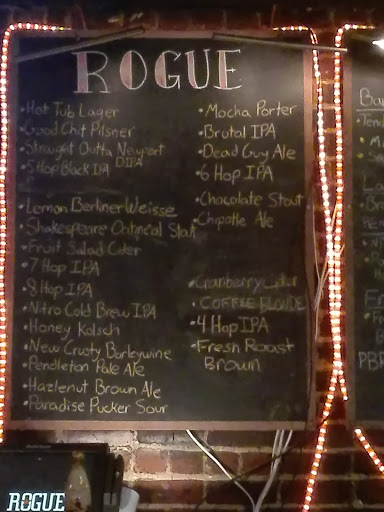 ROGUE
•Hot Tub Lager
•Good Chit Pilsner
•Straight Outta Newport
DIPA
•5 Hop Black IPA
•Lemon Berliner Weisse
•Shakespeare Oatmeal Stout
•Fruit Salad Cider
•7 Hop IPA
•8 Hop IPA
•Nitro Cold Brew IPA
•Honey Kolsch
•New Crusty Barleywine
•Pendleton Pale Ale
•Hazlenut Brown Ale
•Paradise Pucker Sour
•Mocha Porter
•Brutal IPA
•Dead Guy Ale
•6 Hop IPA
•Chocolate Stout
•Chipotle Ale
•Cranberry Cider
•COFFEE BLONDE
•4 Hop IPA
•Fresh Roast
Brown
PB
ROGUE